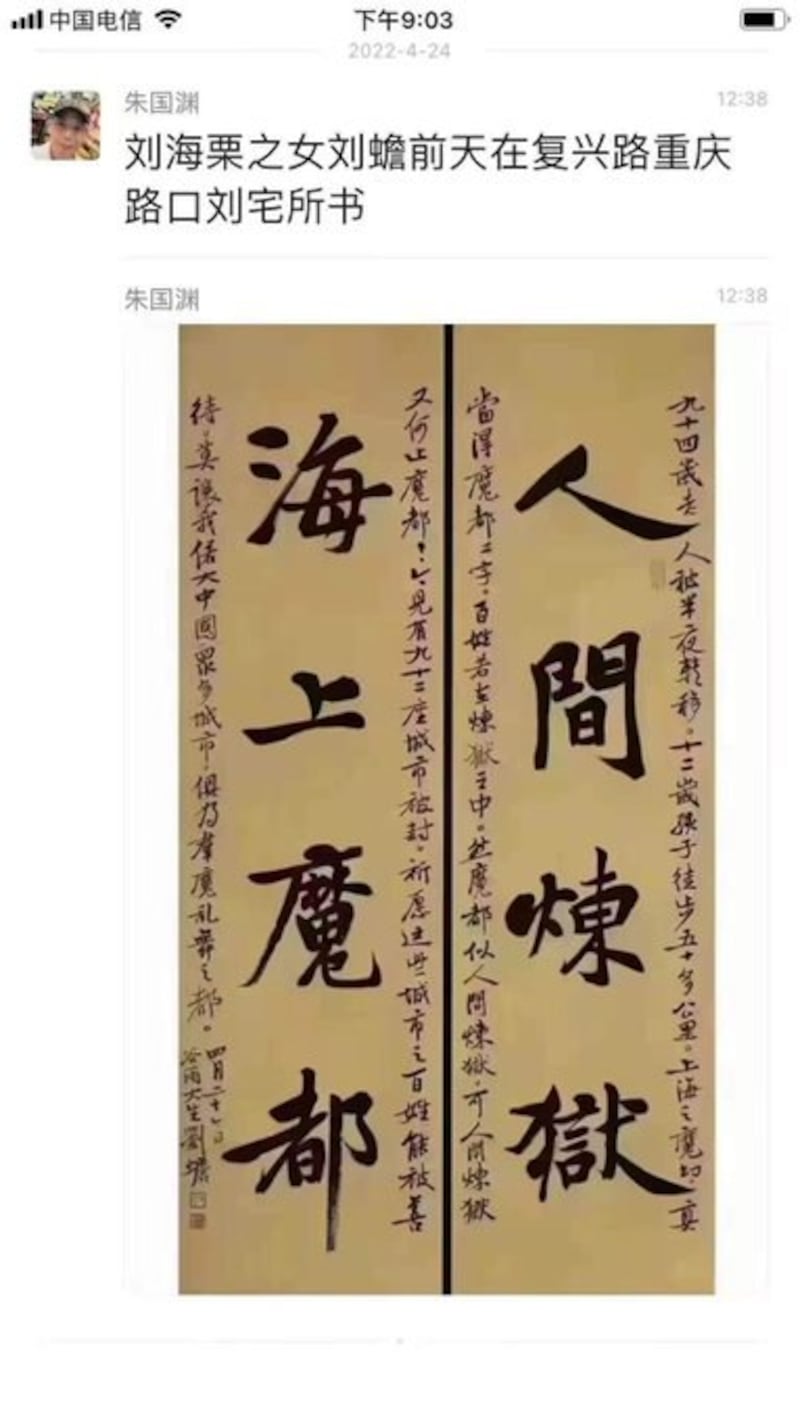 中国电信
下午9:03
2022-4-24
朱国渊
12:38
刘海栗之女刘蟾前天在复兴路重庆
路口刘宅所书
朱国渊
12:38
九十四歲老人被半夜轉移。十二歲孩子徒步五十多公里。上海之魔幻，真
人間煉獄
當得魔都二字。百姓若在煉獄之中。然魔都似人間煉獄，可人間煉獄
又何止魔都？今見有九十二座城市被封。祈愿这些城市之百姓能被善
海上魔都
待。莫讓我偌大中國眾多城市，俱為群魔乱舞之都。
四月二十
劉蟾